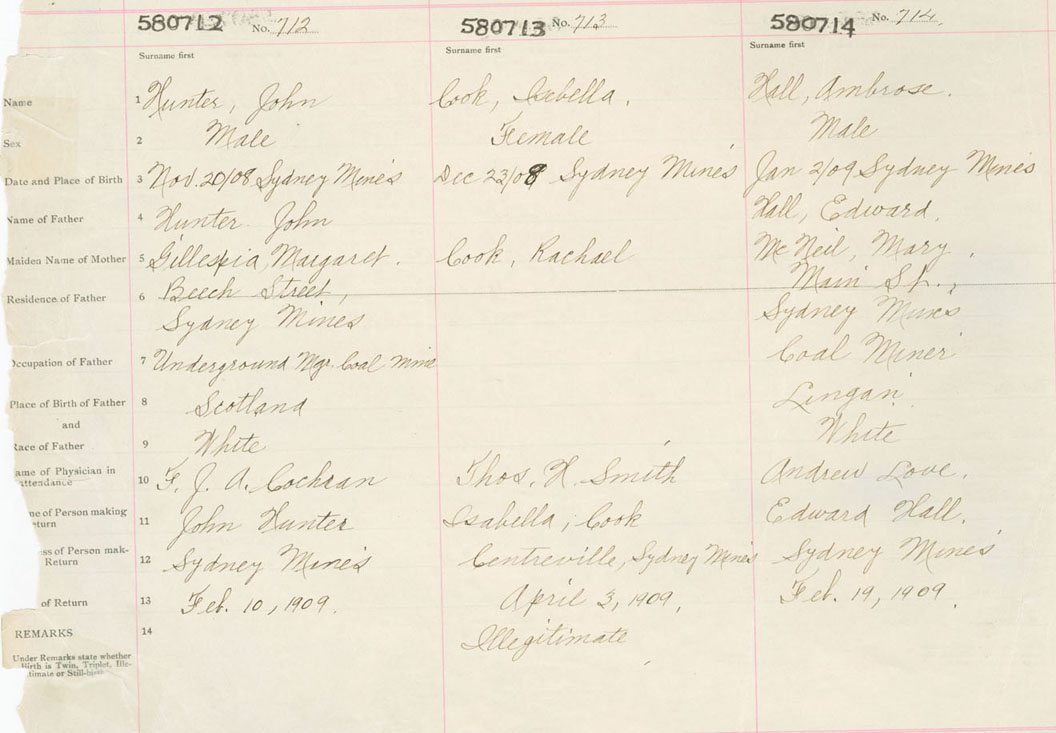 580712 No. 712
580713 No. 713
580714 No. 714
Surname first
Surname first
Surname first
Name
1 Hunter, John
Cook, Isabella.
Hall, Ambrose.
Sex
2 Male
Female
Male
Date and Place of Birth
3 Nov. 20/08 Sydney Mines
Dec 23/08 Sydney Mines
Jan 2/09 Sydney Mines
Name of Father
4 Hunter John
Hall, Edward.
Maiden Name of Mother
5 Gillespia, Margaret.
Cook, Rachael
McNeil, Mary.
Residence of Father
6 Beech Street,
Sydney Mines
Main St.,
Sydney Mines
Occupation of Father
7 Underground Mgr. Coal Mine
Coal Miner
Place of Birth of Father
8 Scotland
Lingan
and
Race of Father
9 White
White
ame of Physician in
attendance
10 F. J. A. Cochran
Thos. H. Smith
Andrew Love.
ne of Person making
eturn
11 John Hunter
Isabella, Cook
Edward Hall.
ss of Person mak-
Return
12 Sydney Mines
Centreville, Sydney Mines
Sydney Mines
of Return
13 Feb. 10, 1909.
April 3, 1909.
Feb. 19, 1909
REMARKS
14
Illegitimate
Under Remarks state whether
Birth is Twin, Triplet, Ille-
timate or Still-birth